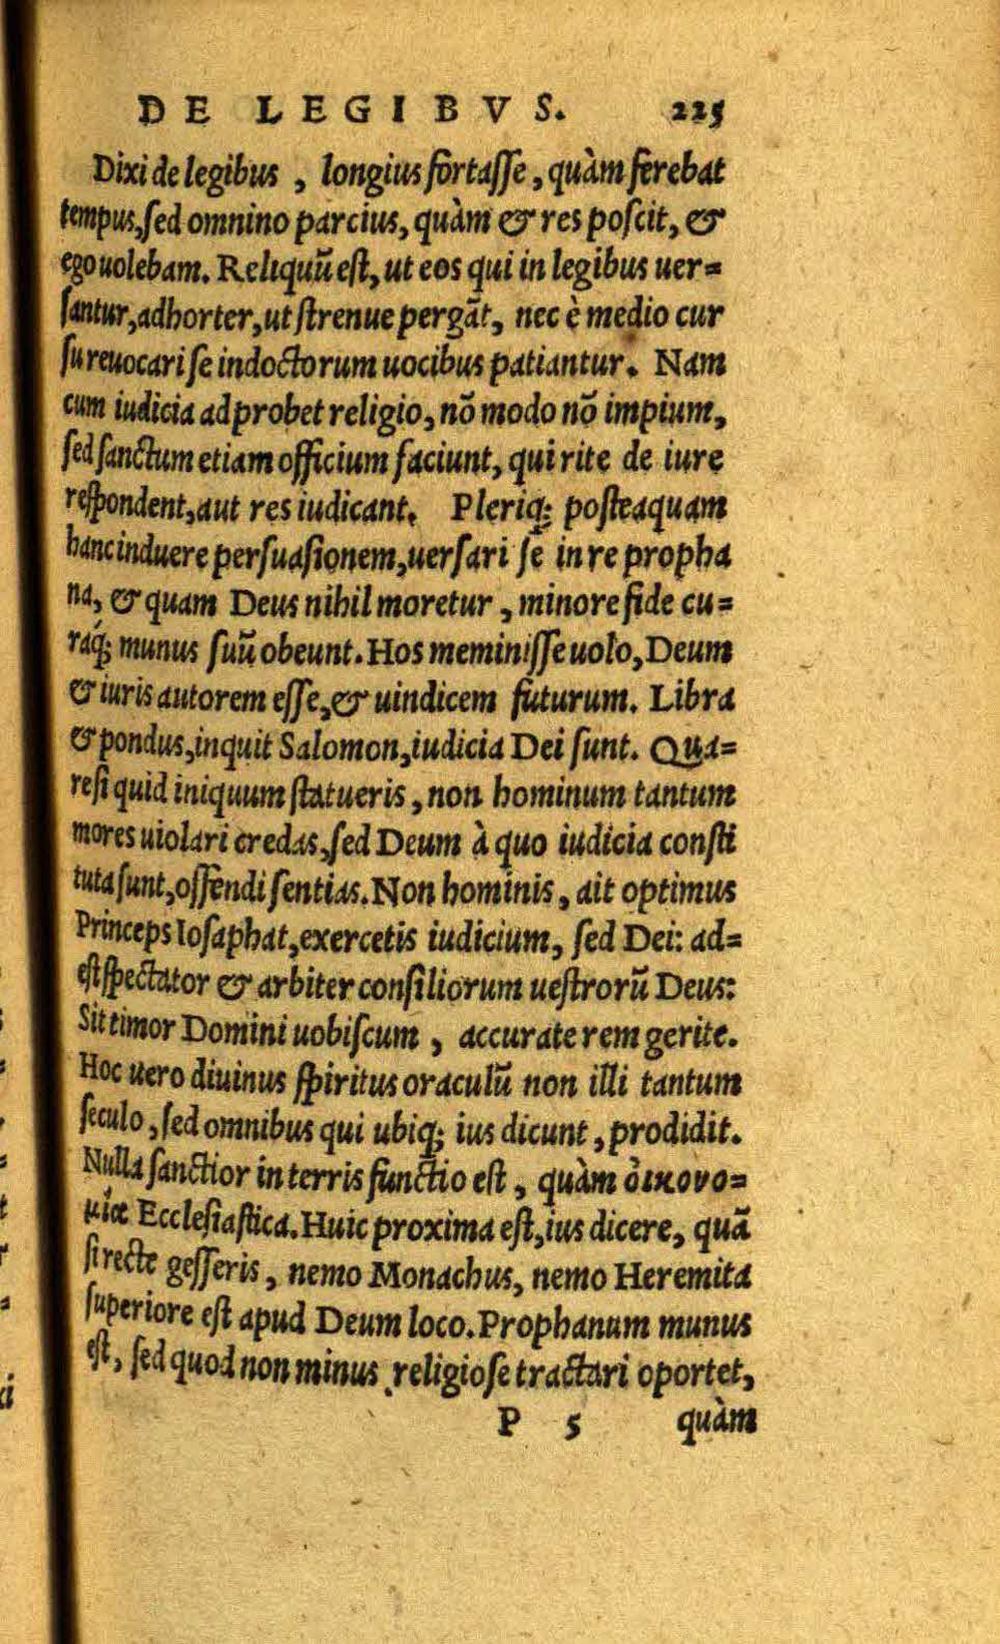 DE LEGIBVS. 225
Dixi de legibus, longius fortasse, quàm ferebat
tempus, sed omnino parcius, quàm & res poscit, &
ego uolebam. Reliquũ est, ut eos qui in legibus uer=
santur, adhorter, ut strenue pergãt, nec è medio cur
su reuocari se indoctorum uocibus patiantur. Nam
cum iudicia adprobet religio, nõ modo nõ impium,
sed sanctum etiam officium faciunt, qui rite de iure
respondent, aut res iudicant. Pleriq; posteaquam
hanc induere persuasionem, uersari se in re propha
na, & quam Deus nihil moretur, minore fide cu=
raq; munus suũ obeunt. Hos meminisse uolo, Deum
& iuris autorem esse, & uindicem futurum. Libra
& pondus, inquit Salomon, iudicia Dei sunt. Qua=
re si quid iniquum statueris, non hominum tantum
mores uiolari credas, sed Deum à quo iudicia consti
tuta sunt, offendi sentias. Non hominis, ait optimus
Princeps Iosaphat, exercetis iudicium, sed Dei: ad=
est spectator & arbiter consiliorum uestrorũ Deus:
Sit timor Domini uobiscum, accurate rem gerite.
Hoc uero diuinus spiritus oraculũ non illi tantum
seculo, sed omnibus qui ubiq; ius dicunt, prodidit.
Nulla sanctior in terris functio est, quàm ὀικονο=
μίαι Ecclesiastica. Huic proxima est, ius dicere, quã
si recte gesseris, nemo Monachus, nemo Heremita
superiore est apud Deum loco. Prophanum munus
est, sed quod non minus religiose tractari oportet,
P 5 quàm